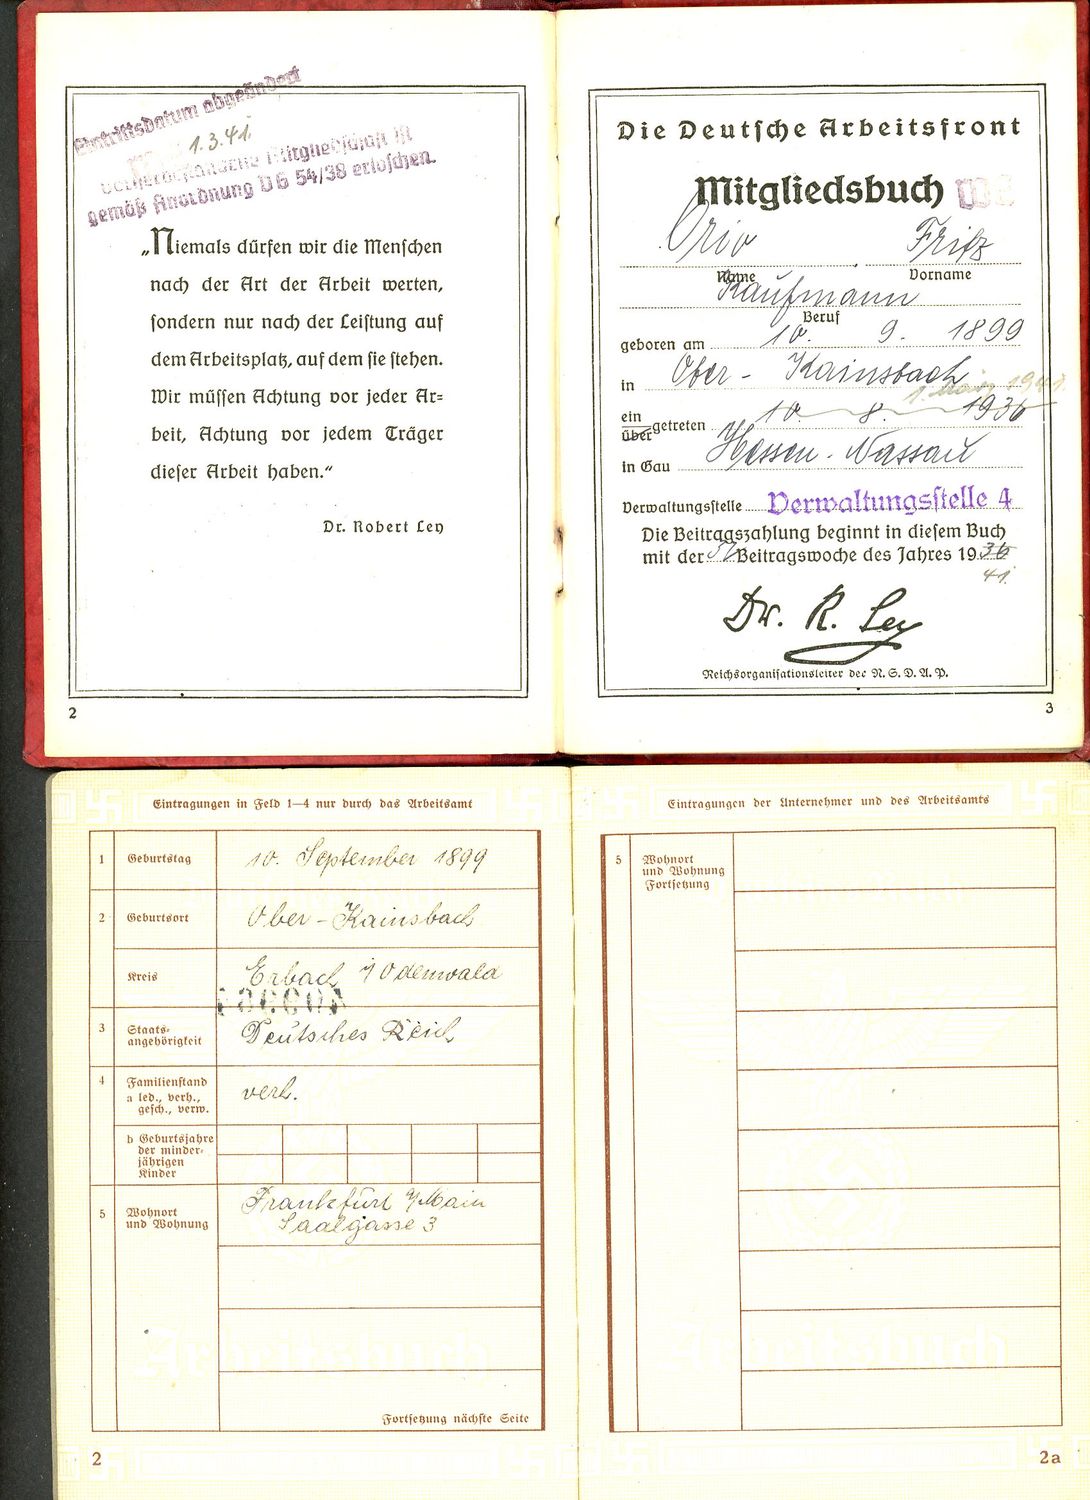 Eintrittsdatum abgeändert
1.3.41.
Mitgliedschaft ist
gemäß Anordnung 54/38 erloschen.
„Niemals dürfen wir die Menschen
nach der Art der Arbeit werten,
sondern nur nach der Leistung auf
dem Arbeitsplatz, auf dem sie stehen.
Wir müssen Achtung vor jeder Ar=
beit, Achtung vor jedem Träger
dieser Arbeit haben.“
Dr. Robert Ley
2
Die Deutsche Arbeitsfront
Mitgliedsbuch
Orio Fritz
Name Vorname
Kaufmann
Beruf
geboren am 10. 9. 1899
in Ober - Kainsbach
1. März 1941.
ein
über
getreten 10. 8. 1936
in Gau Hessen - Nassau
Verwaltungsstelle Verwaltungsstelle 4
Die Beitragszahlung beginnt in diesem Buch
mit der Beitragswoche des Jahres 1936
41.
Dr. R. Ley
Reichsorganisationsleiter der N.S.D.A.P.
3
Eintragungen in Feld 1—4 nur durch das Arbeitsamt
1 Geburtstag 10. September 1899
2 Geburtsort Ober - Kainsbach
Kreis Erbach i/Odenwald
3 Staats-
angehörigkeit
Deutsches Reich
4 Familienstand
a led., verh.,
gesch., verw.
verh.
b Geburtsjahre
der minder-
jährigen
Kinder
5 Wohnort
und Wohnung
Frankfurt a/Main
Saalgasse 3
Fortsetzung nächste Seite
Arbeitsbuch
2
Eintragungen der Unternehmer und des Arbeitsamts
5 Wohnort
und Wohnung
Fortsetzung
Deutsches Reich
Arbeitsbuch
2a